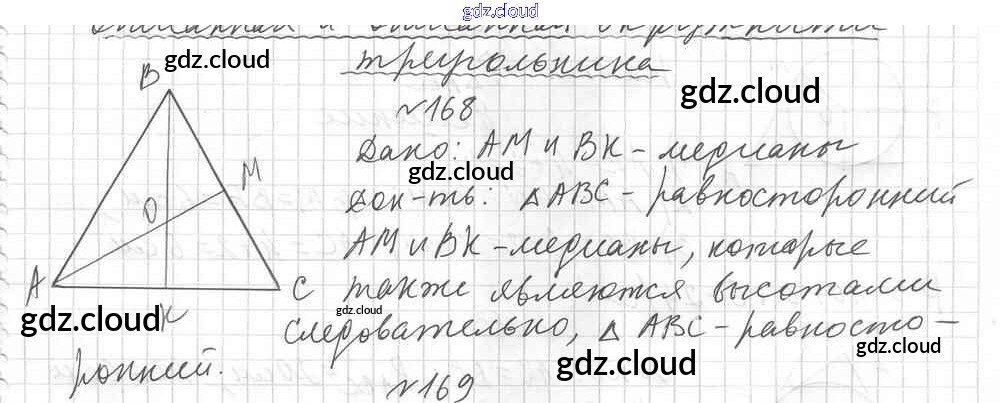 gdz.cloud
Описанная и вписанная окружности
треугольника
gdz.cloud
B
gdz.cloud
№168
Дано: AM и BK - медианы
gdz.cloud
M
Док-ть: △ABC - равносторонний
O
AM и BK - медианы, которые
A
C также являются высотами
gdz.cloud
K
gdz.cloud
следовательно, △ ABC - равносто-
gdz.cloud
ронний.
gdz.cloud
№169